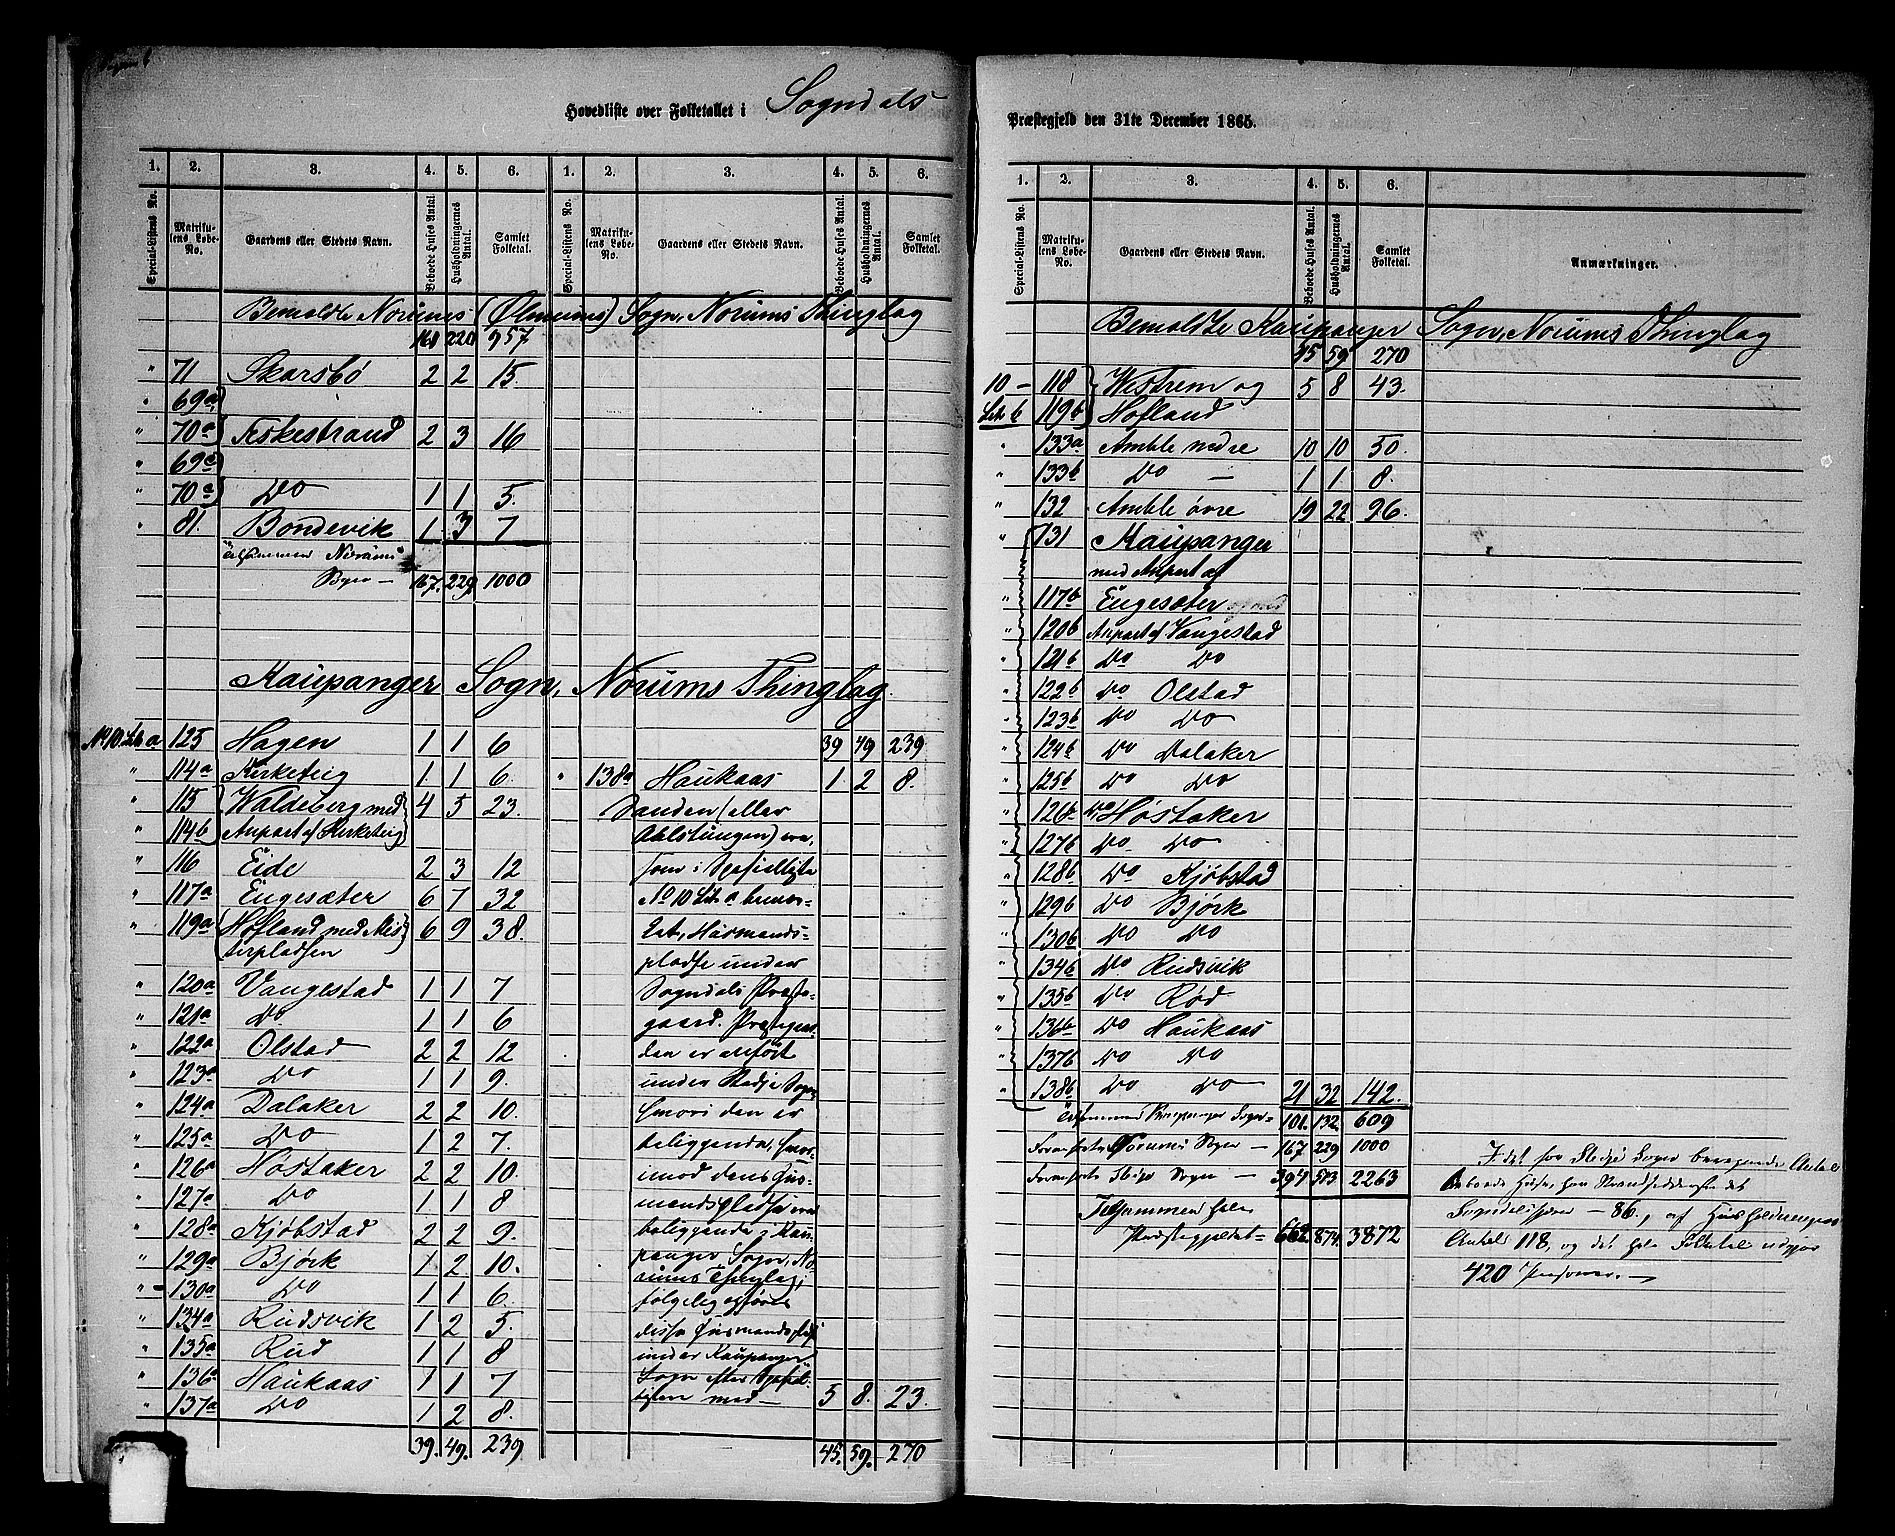 Hovedliste over Folketallet i Sogndals
1. 2. 3. 4. 5. 6. 1. 2. 3. 4. 5. 6.
Special-Listens No. Matrikulens Løbe-No. Gaardens eller Stedets Navn. Beboede Huses Antal. Husholdningernes Antal. Samlet Folketal. Special-Listens No. Matrikulens Løbe-No. Gaardens eller Stedets Navn. Beboede Huses Antal. Husholdningernes Antal. Samlet Folketal.
Bemeldte Norums (Ølmeims) Sogn, Norums Thinglag
160 220 957
" 71 Skarsbø 2 2 15.
" 69a
" 70a Fiskestrand 2 3 16
" 69c
" 70c Do 1 1 5.
" 81. Bondevik 1 3 7
Tilsammen Norums
Sogn — 167. 229 1000
Kaupanger Sogn, Norums Thinglag.
No 10 Lit a 125 Hagen 1 1 6 39 49 239
" 114a Kirketeig 1 1 6. " 138a Haukaas 1 2 8.
" 115 Waldeberg med 4 5 23.
" 114b Anpart af Kirketeig
" 116 Eide 2 3 12
" 117a Engesæter 6 7 32
" 119a Hofland med Kli- 6 9 38.
terpladsen
" 120a Vangestad 1 1 7
" 121a Do 1 1 6
" 122a Olstad 2 2 12
" 123a Do 1 1 9.
" 124a Dalaker 2 2 10.
" 125a Do 1 2 7.
" 126a Høstaker 2 2 10.
" 127a Do 1 1 8
" 128a Kjøbstad 2 2 9.
" 129a Bjørk 1 2 10.
" 130a Do 1 1 6.
" 134a Rudsvik 1 2 5.
" 135a Rud 1 1 8
" 136a Haukaas 1 1 7
" 137a Do 1 2 8.
39. 49. 239
Sanden (eller
som i Specialliste
No 10 Lit a bemær-
ket, Husmands-
pladse under
Sogndals Præste-
gaard. Præstegaar-
den er anført
under Stedje Sogn
hvori den er
beliggende, hvor-
imod dens Hus-
mandspladse ere
beliggende i Kau-
panger Sogn, No-
rums Thinglag,
følgelig opføres
disse Husmandspladse
under Kaupanger
Sogn efter Special-
listen med — 5 8. 23.
45. 59. 270
Præstegjeld den 31te December 1865.
1. 2. 3. 4. 5. 6.
Special-Listens No. Matrikulens Løbe-No. Gaardens eller Stedets Navn. Beboede Huses Antal. Husholdningernes Antal. Samlet Folketal. Anmærkninger.
Bemeldte Kaupanger Sogn, Norums Thinglag
45 59 270
10 — 118 Westrem og 5 8 43.
Lit b 119b Hofland
" 133a Amble nedre 10 10 50.
" 133b Do — 1 1 8.
" 132 Amble øvre 19 22 96.
" 131 Kaupanger
med Anpart af
" 117b Engesæter
" 120b Anpart af Vangestad
" 121b Do Do
" 122b Do Olstad
" 123b Do Do
" 124b Do Dalaker
" 125b Do Do
" 126b Do Høstaker
" 127b Do Do
" 128b Do Kjøbstad
" 129b Do Bjørk
" 130b Do Do
" 134b Do Rudsvik
" 135b Do Rød
" 136b Do Haukaas
" 137b Do Do
" 138b Do Do 21 32 142.
Tilsammen Kaupanger Sogn — 101. 132 609
Norums Sogn — 167 229 1000
Sogn — 394 513 2263
Tilsammen hele
Præstegjeldet — 662. 874. 3872
I det for Stedje Sogn Antal
beboede Huse, har Strandstedet
Sogndalsfjæren — 86., af Husholdningernes
Antal 118, og det hele Folketal udgjør
420 Personer. —